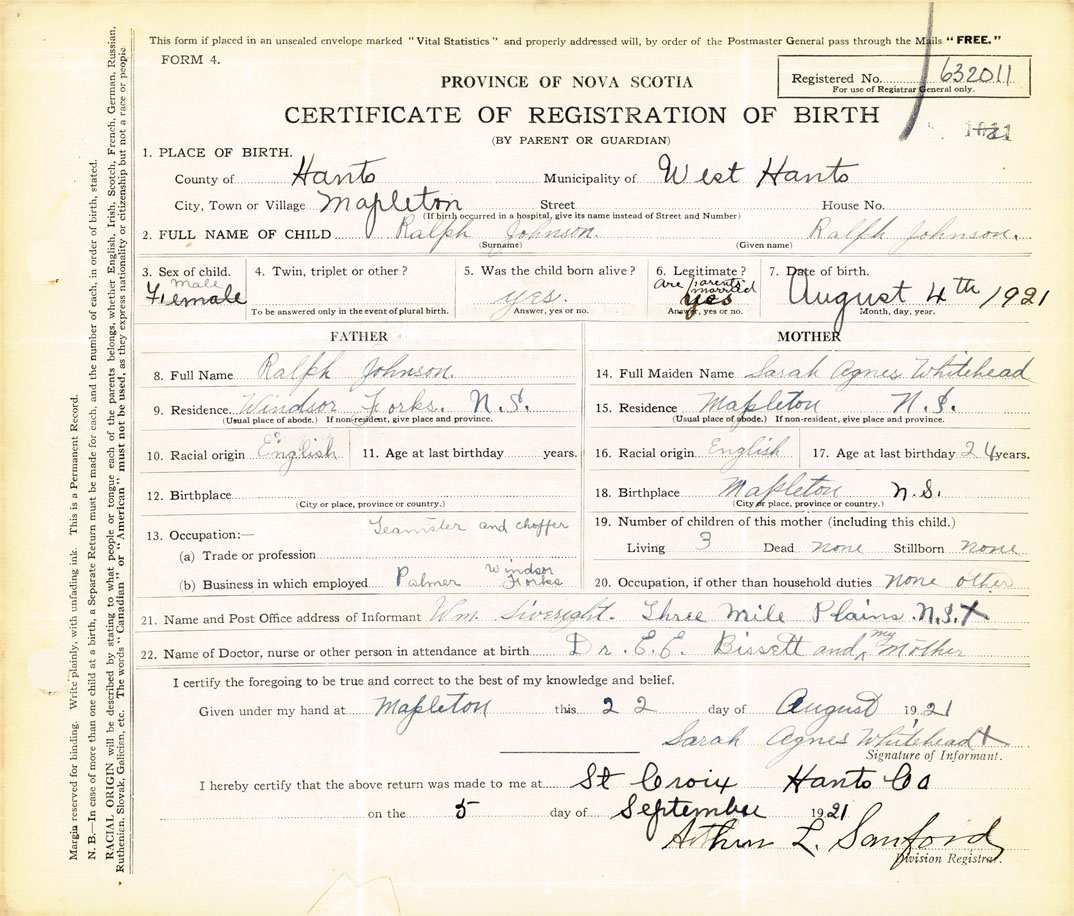 This form if placed in an unsealed envelope marked "Vital Statistics" and properly addressed will, by order of the Postmaster General pass through the Mails "FREE."
FORM 4.
Registered No. 632011
For use of Registrar General only.
PROVINCE OF NOVA SCOTIA
CERTIFICATE OF REGISTRATION OF BIRTH
(BY PARENT OR GUARDIAN)
1. PLACE OF BIRTH.
County of Hants Municipality of West Hants
City, Town or Village Mapleton Street House No.
(If birth occurred in a hospital, give its name instead of Street and Number)
2. FULL NAME OF CHILD Ralph Johnson. Ralph Johnson.
(Surname) (Given name)
3. Sex of child. 4. Twin, triplet or other? 5. Was the child born alive? 6. Legitimate? 7. Date of birth.
Male are parents married
Female yes. yes August 4th 1921
To be answered only in the event of plural birth. Answer, yes or no. Answer, yes or no. Month, day, year.
FATHER
8. Full Name Ralph Johnson.
9. Residence Windsor Forks. N.S.
(Usual place of abode.) If non-resident, give place and province.
10. Racial origin English 11. Age at last birthday years.
12. Birthplace
(City or place, province or country.)
13. Occupation:— Teamster and choffer
(a) Trade or profession
(b) Business in which employed Palmer Windsor Forks
MOTHER
14. Full Maiden Name Sarah Agnes Whitehead
15. Residence Mapleton N.S.
(Usual place of abode.) If non-resident, give place and province.
16. Racial origin English 17. Age at last birthday 24 years.
18. Birthplace Mapleton N.S.
(City or place, province or country.)
19. Number of children of this mother (including this child.)
Living 3 Dead none Stillborn none
20. Occupation, if other than household duties none other
21. Name and Post Office address of Informant Wm. Siveright. Three Mile Plains. N.S. X
22. Name of Doctor, nurse or other person in attendance at birth Dr. E.E. Bissett and my Mother
I certify the foregoing to be true and correct to the best of my knowledge and belief.
Given under my hand at Mapleton this 22 day of August 1921
Sarah Agnes Whitehead X
Signature of Informant.
I hereby certify that the above return was made to me at St Croix Hants Co
on the 5 day of September 1921
Arthur L. Sanford
Division Registrar.
Margin reserved for binding. Write plainly, with unfading ink. This is a Permanent Record.
N. B.—In case of more than one child at a birth, a Separate Return must be made for each, and the number of each, in order of birth, stated.
RACIAL ORIGIN will be described by stating to what people or tongue each of the parents belongs, whether English, Irish, Scotch, French, German, Russian,
Ruthenian, Slovak, Galician, etc. The words "Canadian" or "American" must not be used, as they express nationality or citizenship but not a race or people.